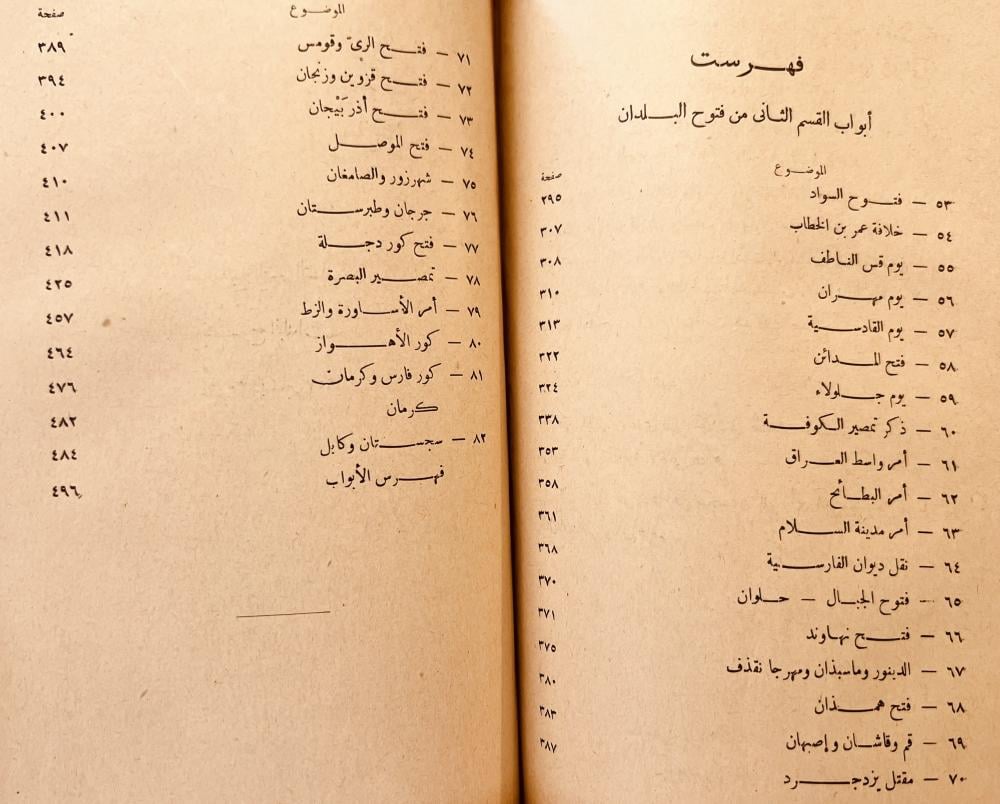 فهرست
أبواب القسم الثانى من فتوح البلدان
الموضوع صفحة
٥٣ — فتوح السواد ٢٩٥
٥٤ — خلافة عمر بن الخطاب ٣٠٧
٥٥ — يوم قس الناطف ٣٠٨
٥٦ — يوم مهران ٣١٠
٥٧ — يوم القادسية ٣١٣
٥٨ — فتح المدائن ٣٢٢
٥٩ — يوم جلولاء ٣٢٤
٦٠ — ذكر تمصير الكوفة ٣٣٨
٦١ — أمر واسط العراق ٣٥٣
٦٢ — أمر البطائح ٣٥٨
٦٣ — أمر مدينة السلام ٣٦١
٦٤ — نقل ديوان الفارسية ٣٦٨
٦٥ — فتوح الجبال — حلوان ٣٧٠
٦٦ — فتح نهاوند ٣٧١
٦٧ — الدينور وماسبذان ومهرجا نقذف ٣٧٥
٦٨ — فتح همذان ٣٨٠
٦٩ — قم وقاشان وإصبهان ٣٨٣
٧٠ — مقتل يزدجرد ٣٨٧
الموضوع صفحة
٧١ — فتح الرىّ وقومس ٣٨٩
٧٢ — فتح قزوين وزنجان ٣٩٤
٧٣ — فتح أذربَيْجان ٤٠٠
٧٤ — فتح الموصل ٤٠٧
٧٥ — شهرزور والصامغان ٤١٠
٧٦ — جرجان وطبرستان ٤١١
٧٧ — فتح كور دجلة ٤١٨
٧٨ — تمصير البصرة ٤٢٥
٧٩ — أمر الأساورة والزط ٤٥٧
٨٠ — كور الأهواز ٤٦٤
٨١ — كور فارس وكرمان ٤٧٦
كرمان ٤٨٢
٨٢ — سجستان وكابل ٤٨٤
فهرس الأبواب ٤٩٦